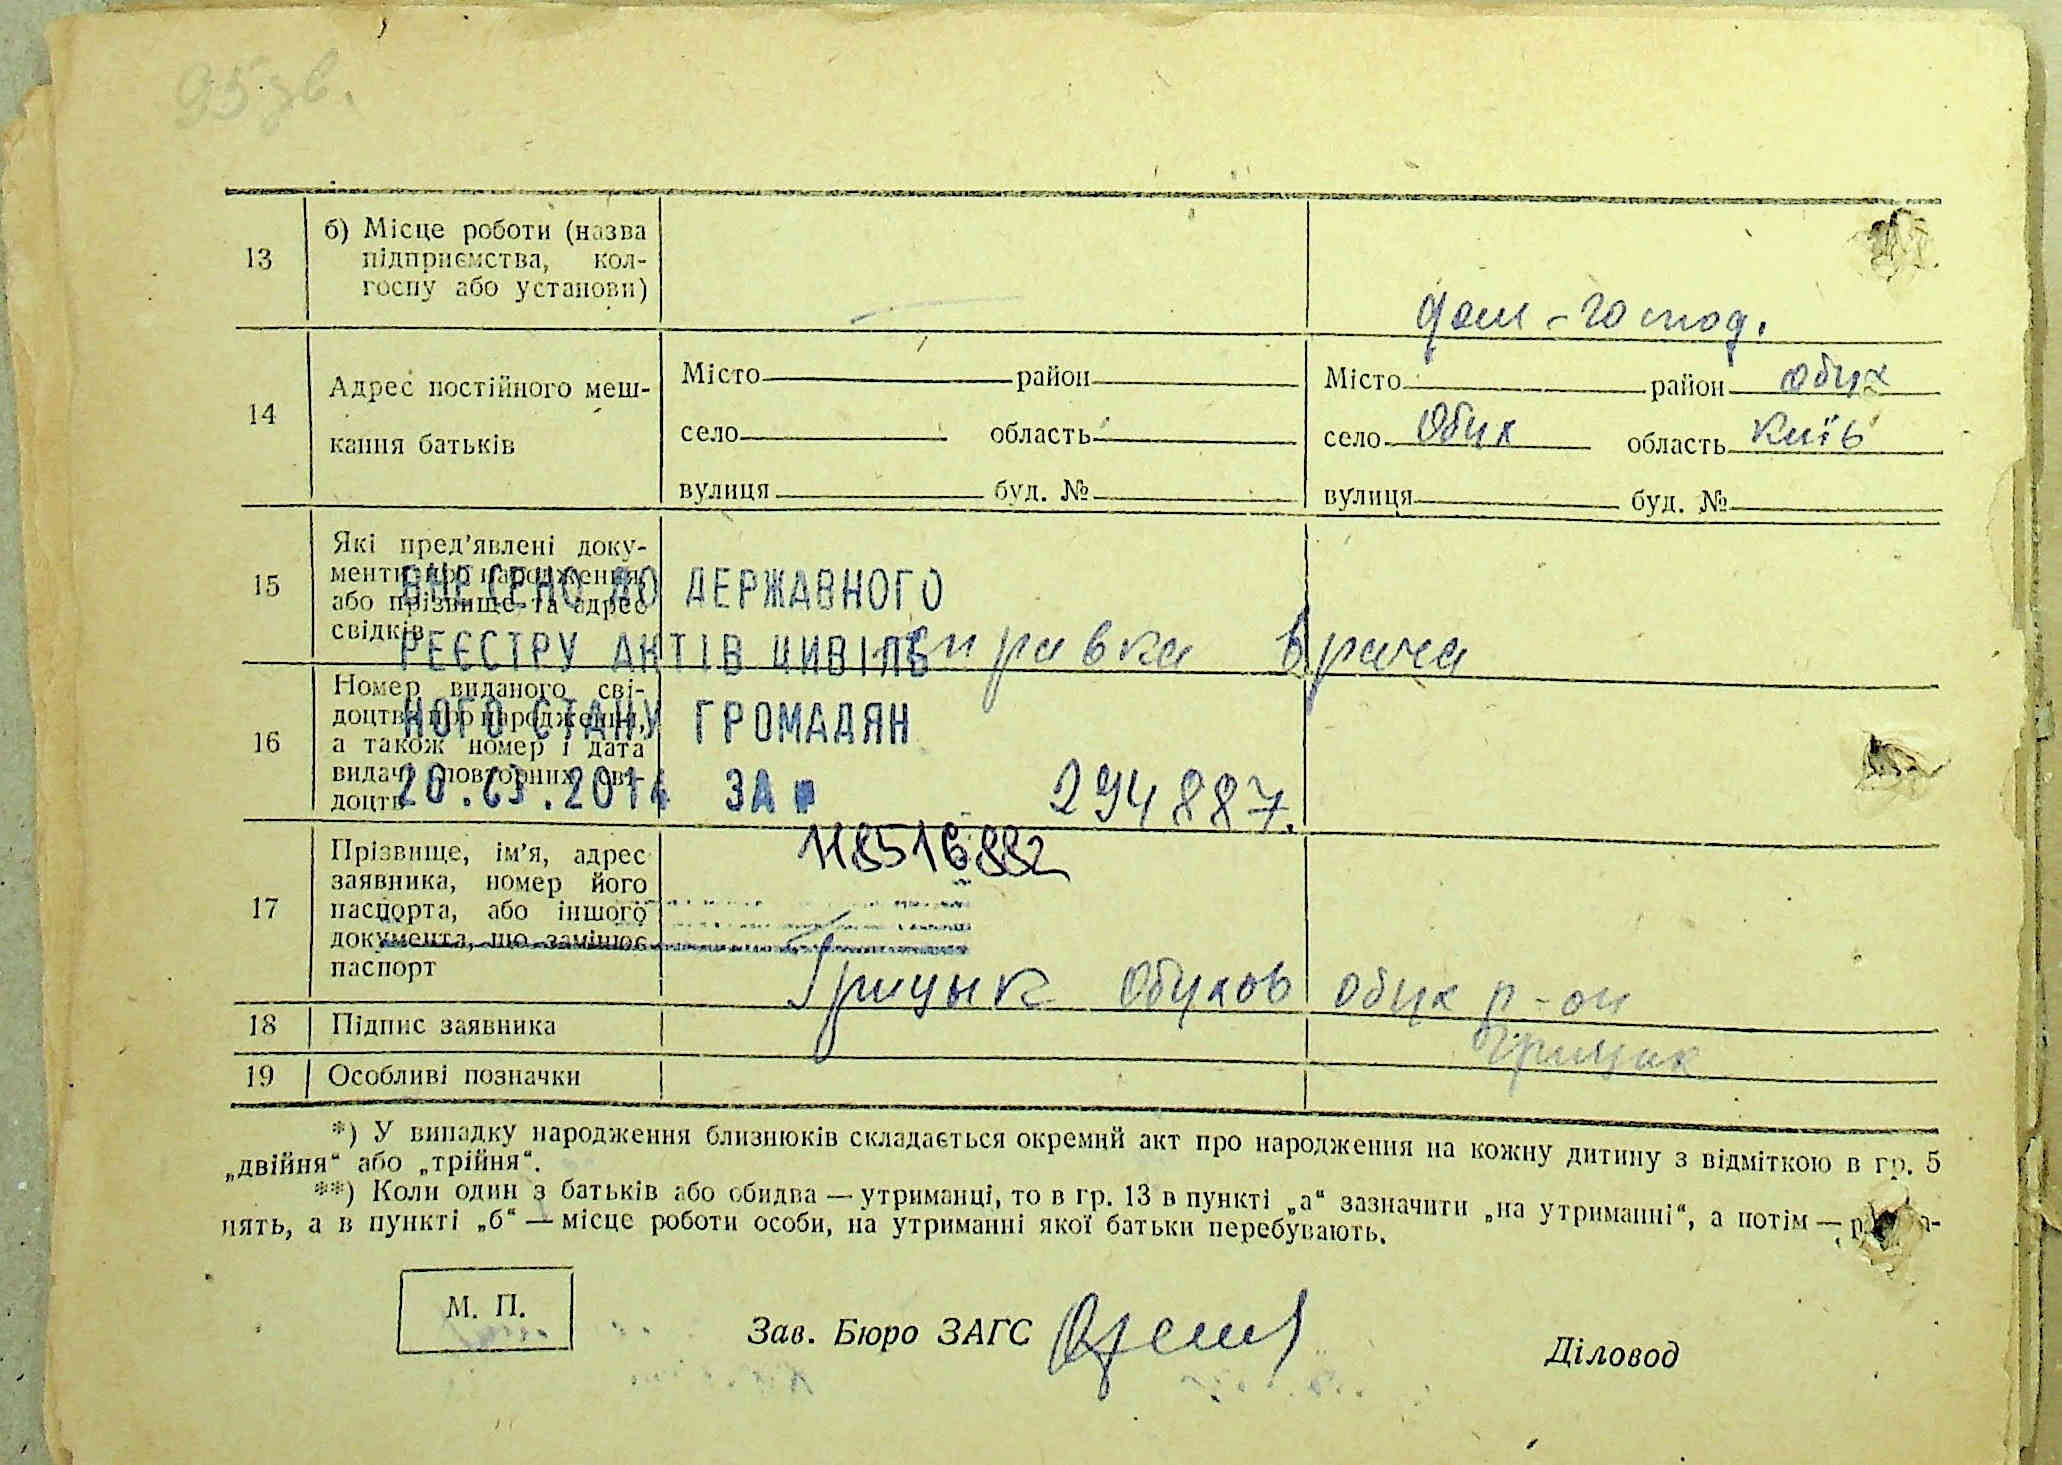 95 зв.
13
б) Місце роботи (назва
підприємства, кол-
госпу або установи)
дом-господ.
14
Адрес постійного меш-
кання батьків
Місто район
село область
вулиця буд. №
Місто район Обух
село Обух область Київ
вулиця буд. №
15
Які пред'явлені доку-
менти про народження,
або прізвище та адрес
свідків
справка врача
ВНЕСЕНО ДО ДЕРЖАВНОГО
РЕЄСТРУ АКТІВ ЦИВІЛЬ
НОГО СТАНУ ГРОМАДЯН
ЗА №
118516882
16
Номер виданого сві-
доцтва про народження,
а також номер і дата
видачі повторних сві-
доцтв
294887.
17
Прізвище, ім'я, адрес
заявника, номер його
паспорта, або іншого
документа, що замінює
паспорт
Грицык Обухов Обух р-он
18
Підпис заявника
Грицик
19
Особливі позначки
*) У випадку народження близнюків складається окремий акт про народження на кожну дитину з відміткою в гр. 5
„двійня“ або „трійня“.
**) Коли один з батьків або обидва — утриманці, то в гр. 13 в пункті „а“ зазначити „на утриманні“, а потім —
нять, а в пункті „б“ — місце роботи особи, на утриманні якої батьки перебувають.
М. П.
Зав. Бюро ЗАГС
Діловод